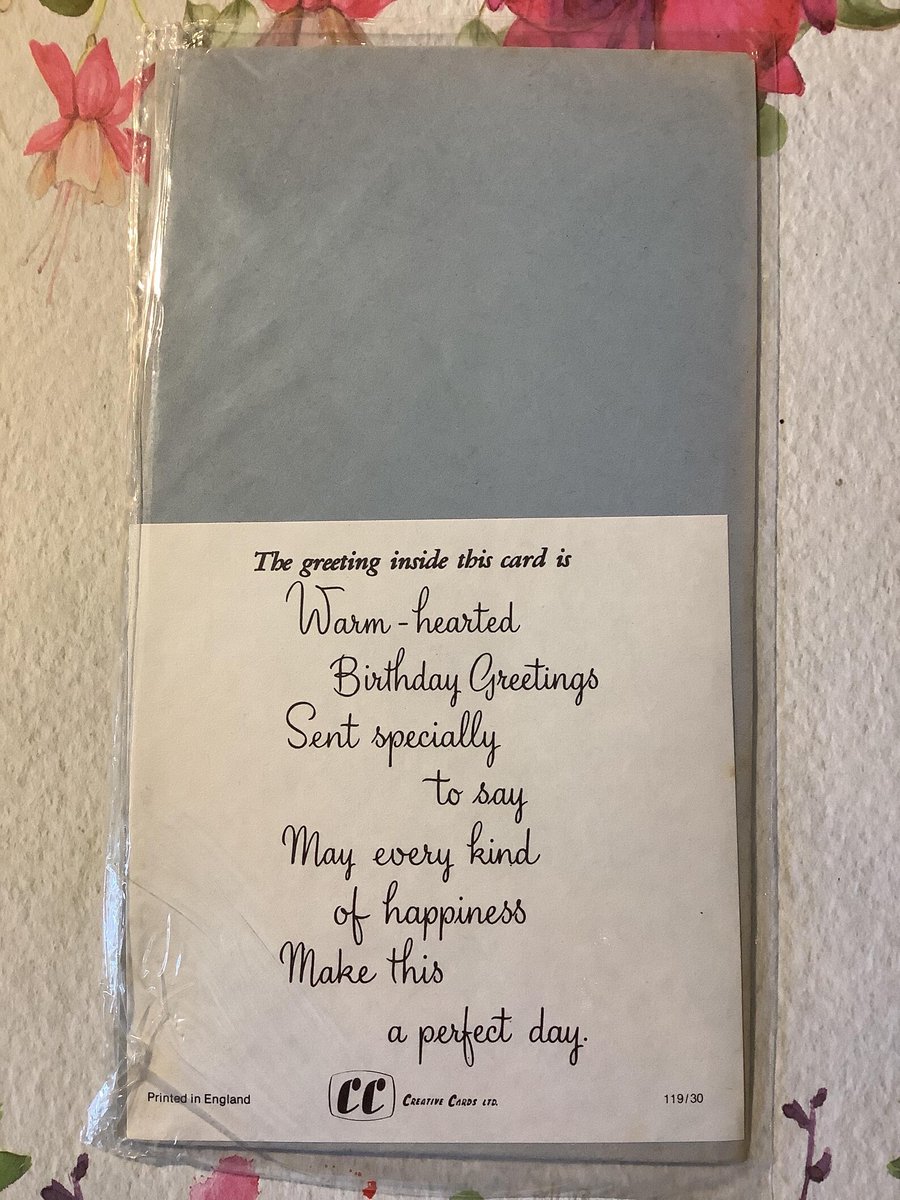 The greeting inside this card is
Warm-hearted
Birthday Greetings
Sent specially
to say
May every kind
of happiness
Make this
a perfect day.
Printed in England
CC
Creative Cards Ltd.
119/30